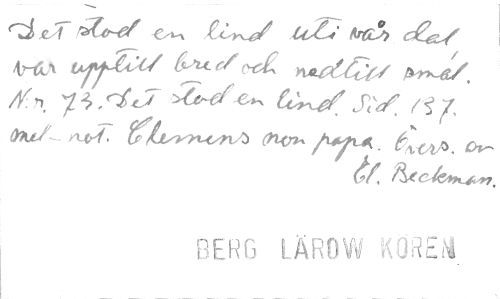 Det stod en lind uti vår dal,
var upptill bred och nedtill smal.
N:r. 73. Det stod en lind. Sid. 137.
mel-not. Clemens non papa. Övers. av
El. Beckman.
BERG LÄROW KOREN